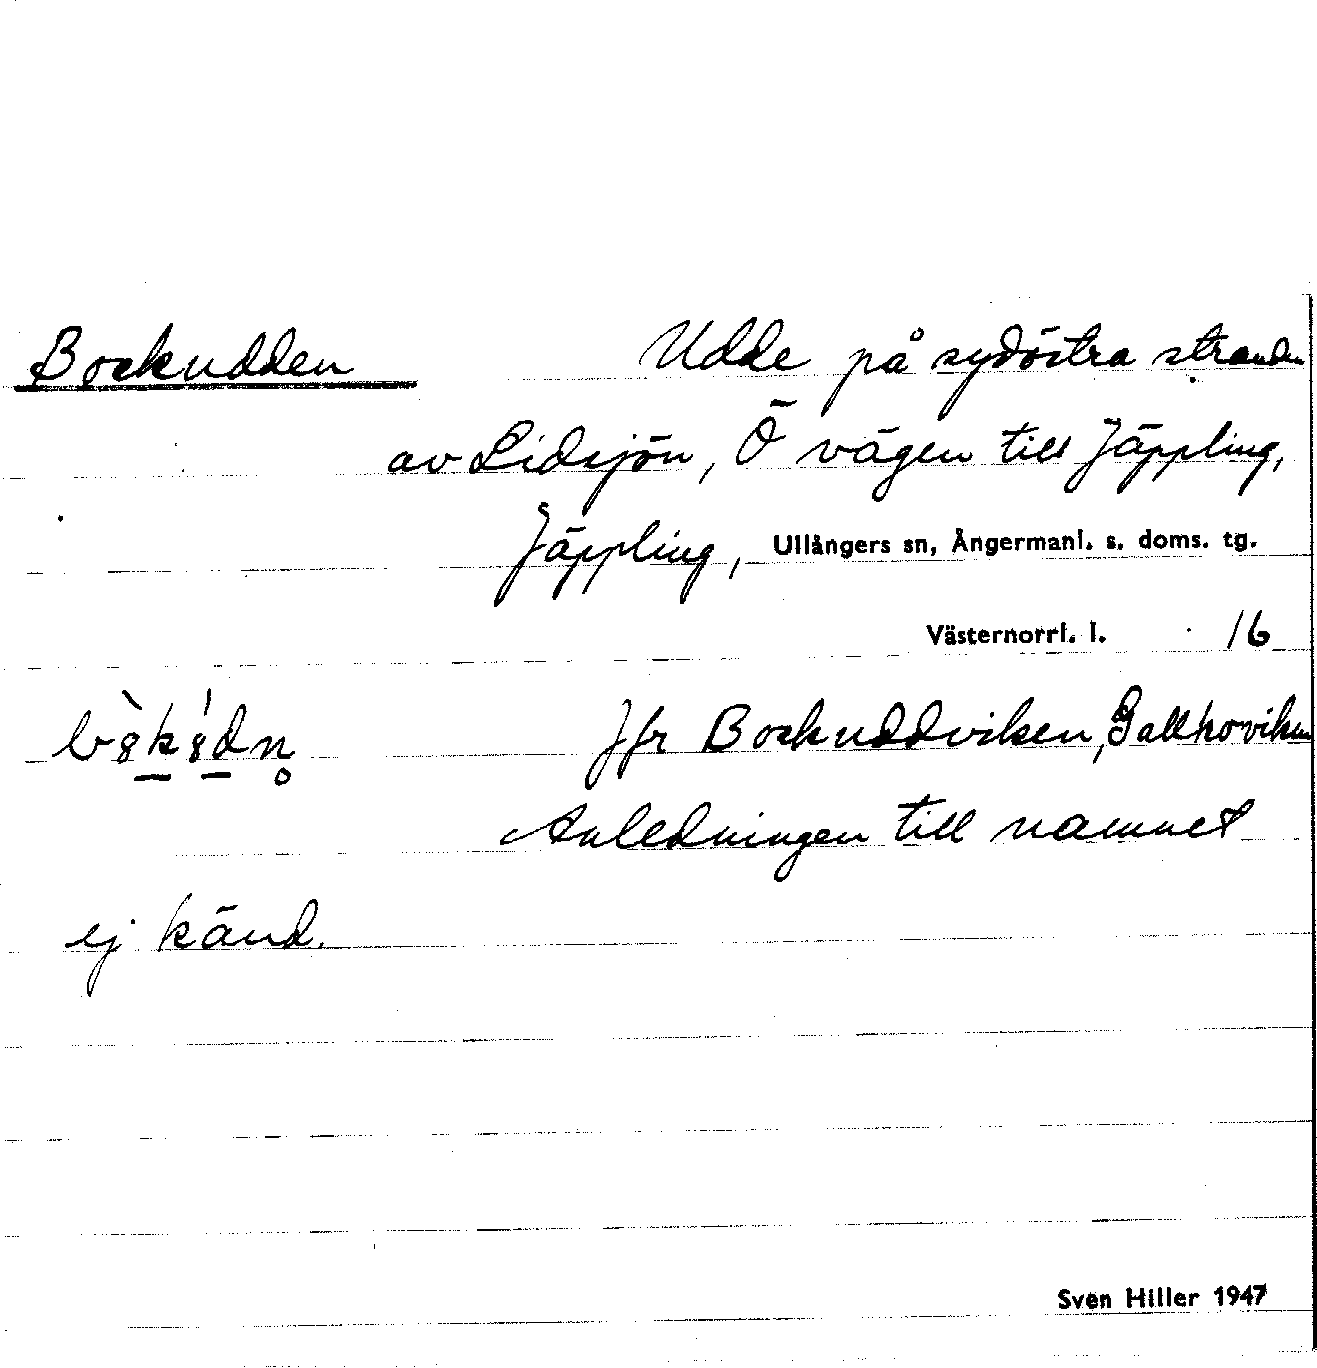 Bockudden Udde på sydöstra stranden
av Lidsjön, Ö vägen till Jäppling,
Jäppling, Ullångers sn, Ångermanl. s. doms. tg.
Västernorrl. l. 16
Jfr Bockuddviken, Gallhoviken
Anledningen till namnet
ej känd.
Sven Hiller 1947